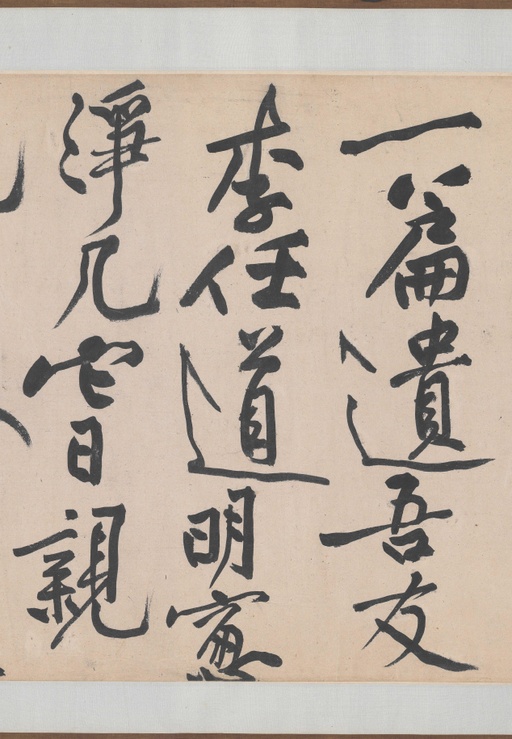 一篇遺吾友
李任道明窻
淨几它日親